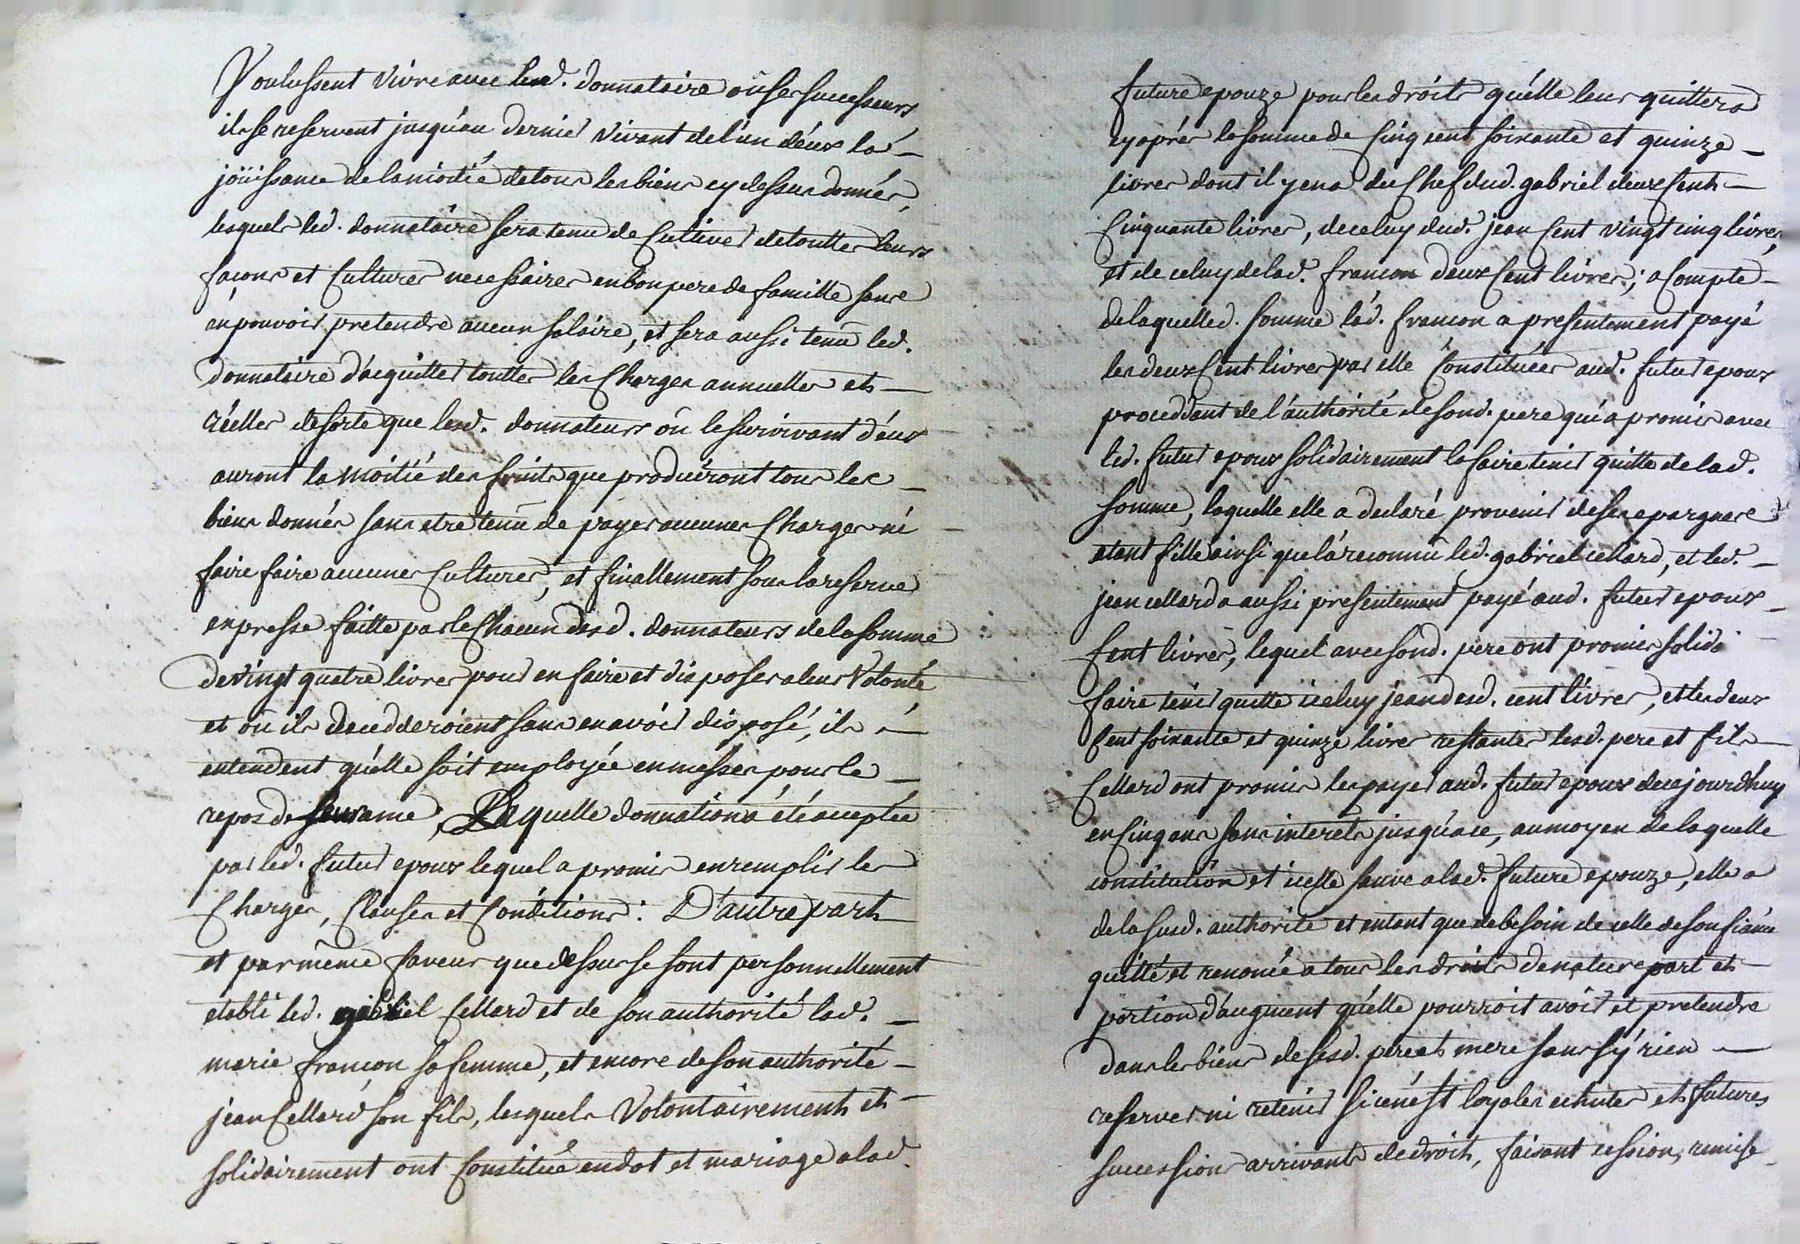 Voulussent vivre avec led. donnataire ou ses successeurs
ils se reservent jusqu'au dernier vivant de l'un d'eux la
joüissance de la moitié de tous les biens cy dessus donnés,
lesquels led. donnataire sera tenu de Cultiver de touttes leurs
façons et Cultures necessaires en bon pere de famille sans
en pouvoir pretendre aucun salaire, et sera aussi tenu led.
donnataire d'acquitter touttes les Charges annuelles et
réelles de sorte que lesd. donnateurs ou le survivant d'eux
auront la moitié des fruits que produiront tous les
biens donnés sans etre tenu de payer aucunes Charges ni
faire faire aucunes Cultures, et finallement sous la reserve
expresse faitte par le Chacun desd. donnateurs de la somme
de vingt quatre livres pour en faire et disposer a leur Volonté
et ou ils decedderoient sans en avoir disposé, ils
entendent qu'elle soit employée en messes pour le
repos de leur ame, Laquelle donnation a été acceptée
par led. futur epoux lequel a promis en remplir les
Charges, Clauses et Conditions: D'autre part
et par même faveur que dessus se sont personnellement
etabli led. gabriel Cellard et de son authorité lad.
marie françon sa femme, et encore de son authorité
jean Cellard son fils, lesquels Volontairement et
solidairement ont Constitué en dot et mariage a lad.
future epouze pour les droits qu'elle leur quittera
cy après la somme de Cinq cent soixante et quinze
livres dont il y en a du Chef dud. gabriel deux Cents
Cinquante livres, de celuy dud. jean Cent vingt cinq livres,
et de celuy de lad. françon deux Cent livres; a Compte
de laquelled. somme lad. françon a presentement payé
les deux Cent livres par elle Constituées aud. futur epoux
proceddant de l'authorité de sond. pere qui a promis avec
led. futur epoux solidairement la faire tenir quitte de lad.
somme, laquelle elle a declaré provenir de ses epargnes
etant fille ainsi que l'a reconnu led. gabriel cellard, et led.
jean cellard a aussi presentement payé aud. futur epoux
Cent livres, lequel avec sond. pere ont promis solid
faire tenir quitte iceluy jean desd. cent livres, et les deux
Cent soixante et quinze livres restantes lesd. pere et fils
Cellard ont promis les payer aud. futur epoux de ce jourd'huy
en Cinq ans sans interets jusqu'a ce, au moyen de laquelle
constitution et icelle sauve a lad. future epouze, elle a
de la susd. authorité et entant que de besoin de celle de son fiancé
quitté et renoncé a tous les droits de nature part et
portion d'augment qu'elle pourroit avoir et pretendre
dans les biens de sesd. pere et mere sans s'y rien
reserver ni retenir si ce n'est loyales echutes et futures
successions arrivants de droit, faisant cession, remise